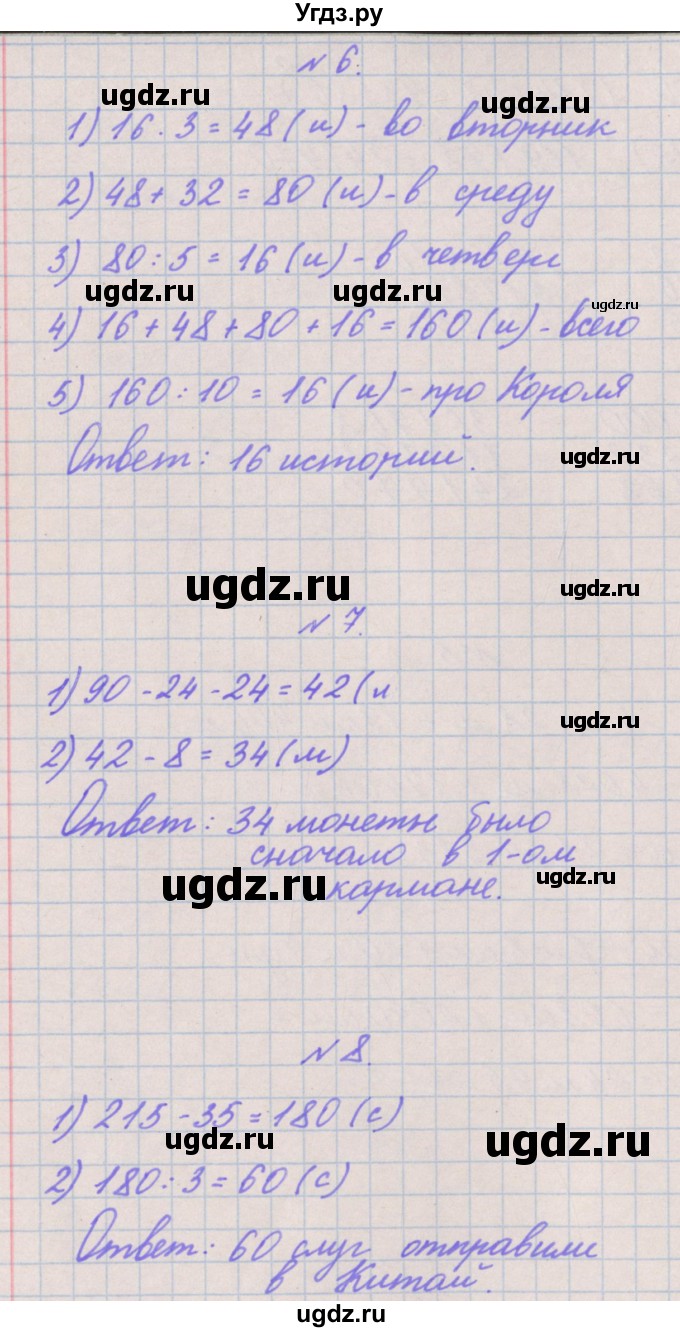 Угдз.ру
№ 6.
ugdz.ru
ugdz.ru
1) 16 · 3 = 48 (и) - во вторник
2) 48 + 32 = 80 (и) - в среду
3) 80 : 5 = 16 (и) - в четверг
ugdz.ru
ugdz.ru
ugdz.ru
4) 16 + 48 + 80 + 16 = 160 (и) - всего
5) 160 : 10 = 16 (и) - про Короля
Ответ: 16 историй.
ugdz.ru
ugdz.ru
ugdz.ru
№ 7.
1) 90 - 24 - 24 = 42 (м
ugdz.ru
2) 42 - 8 = 34 (м)
Ответ: 34 монеты было
сначало в 1-ом
ugdz.ru
ugdz.ru
кармане.
№ 8.
1) 215 - 35 = 180 (с)
ugdz.ru
ugdz.ru
2) 180 : 3 = 60 (с)
Ответ: 60 слуг отправили
в Китай.
ugdz.ru